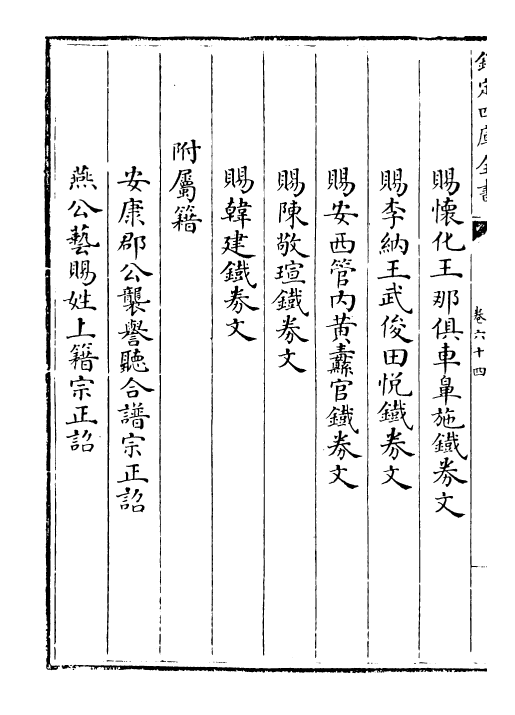 欽定四庫全書
卷六十四
賜懷化王那俱車鼻施鐵券文
賜李納王武俊田悅鐵券文
賜安西管內黃纛官鐵券文
賜陳敬瑄鐵券文
賜韓建鐵券文
附屬籍
安康郡公襲譽聽合譜宗正詔
燕公藝賜姓上籍宗正詔